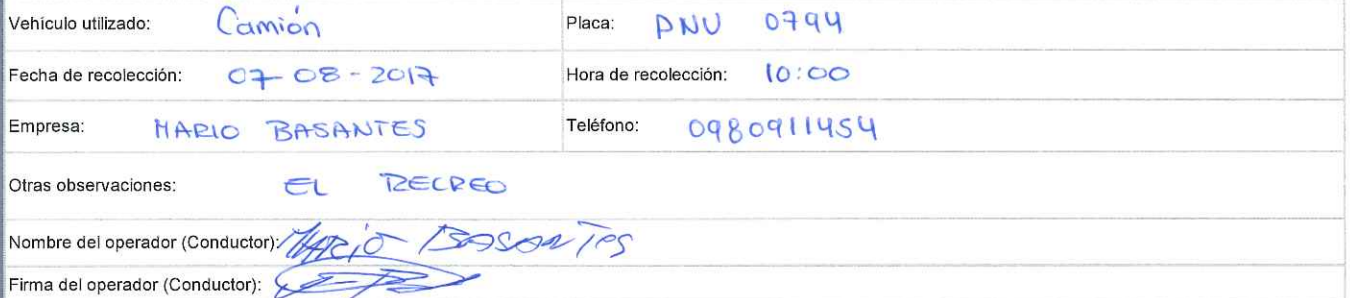 Vehículo utilizado: Camión Placa: PNU 0794
Fecha de recolección: 07-08-2017 Hora de recolección: 10:00
Empresa: MARIO BASANTES Teléfono: 0980911454
Otras observaciones: EL RECREO
Nombre del operador (Conductor): MARIO BASANTES
Firma del operador (Conductor):